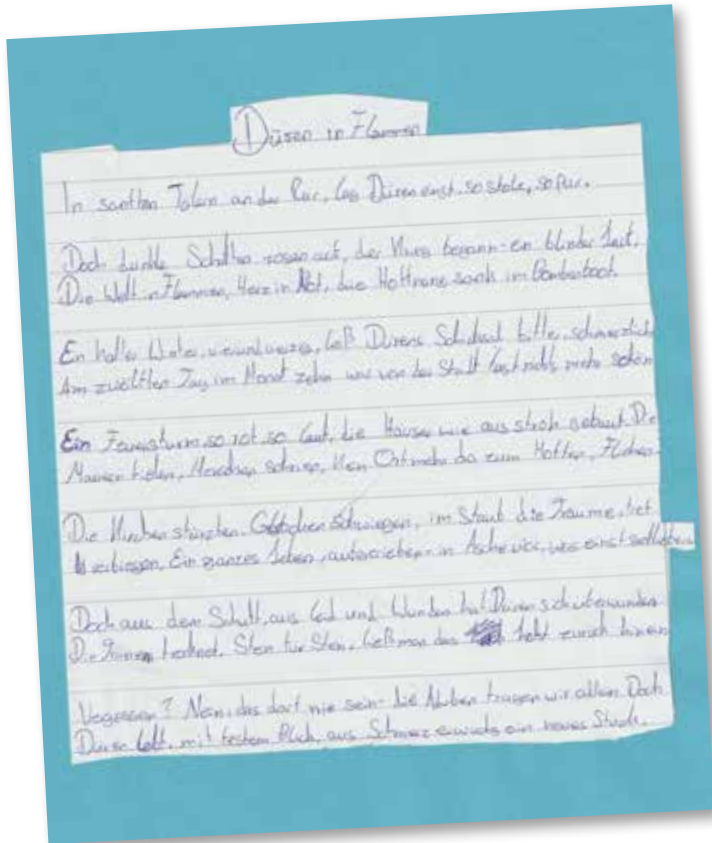 Düren in Flammen
In sanften Tälern an der Rur, lag Düren einst, so stolz, so pur.
Doch dunkle Schatten zogen auf, der Krieg begann - ein blinder Lauf.
Die Welt in Flammen, Herz in Not, die Hoffnung sank im Bombenboot.
Ein kalter Winter, ließ Dürens Schicksal bitter, schmerzlich
Am zwölften Tag im Monat zehn war von der Stadt fast nichts mehr sehen
Ein Feuersturm, so rot, so laut, die Häuser wie aus stroh gebaut. Die
Mauern fielen, Menschen schrien, kein Ort mehr da zum Hoffen, Fliehen.
Die Kirchen stürzten. Glocken schwiegen, im Staub die Träume, tief
verborgen. Ein ganzes Leben, in Asche was einst
Doch aus dem Schutt, aus Leid und Wunden hat Düren sich überwunden
Die Tränen trocknet. Stein für Stein, ließ man das zurück hinein
Vergessen? Nein, das darf nie sein - die Narben tragen wir allein. Doch
Düren lebt, mit festem Blick, aus Schmerz erwuchs ein neues Stück.